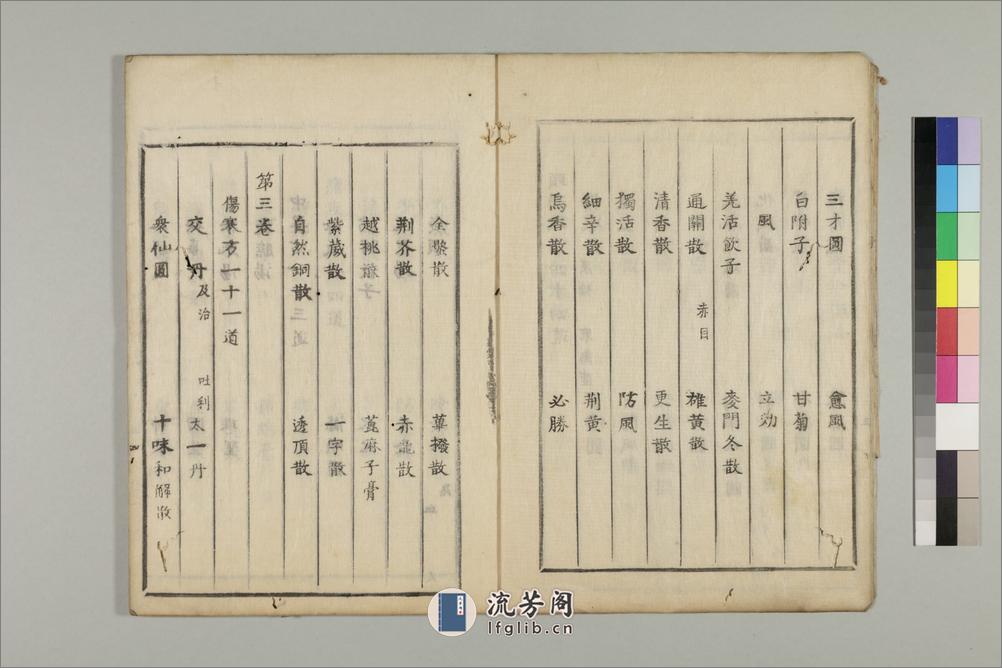 三才圓　愈風
白附子　甘菊
化風　立効
羗活飲子　麥門冬散
通關散　赤目　雄黄散
清香散　更生散
獨活散　防風
細辛散　荆黄
烏香散　必勝
全蝎散　蓽撥散
荆芥散　赤龍散
越桃散　萞麻子膏
紫葳散　一字散
自然銅散　透頂散
第三卷
傷寒方一十一道
交丹及治　吐利太一丹
衆仙圓　十味和解散
流芳阁
lfglib.cn